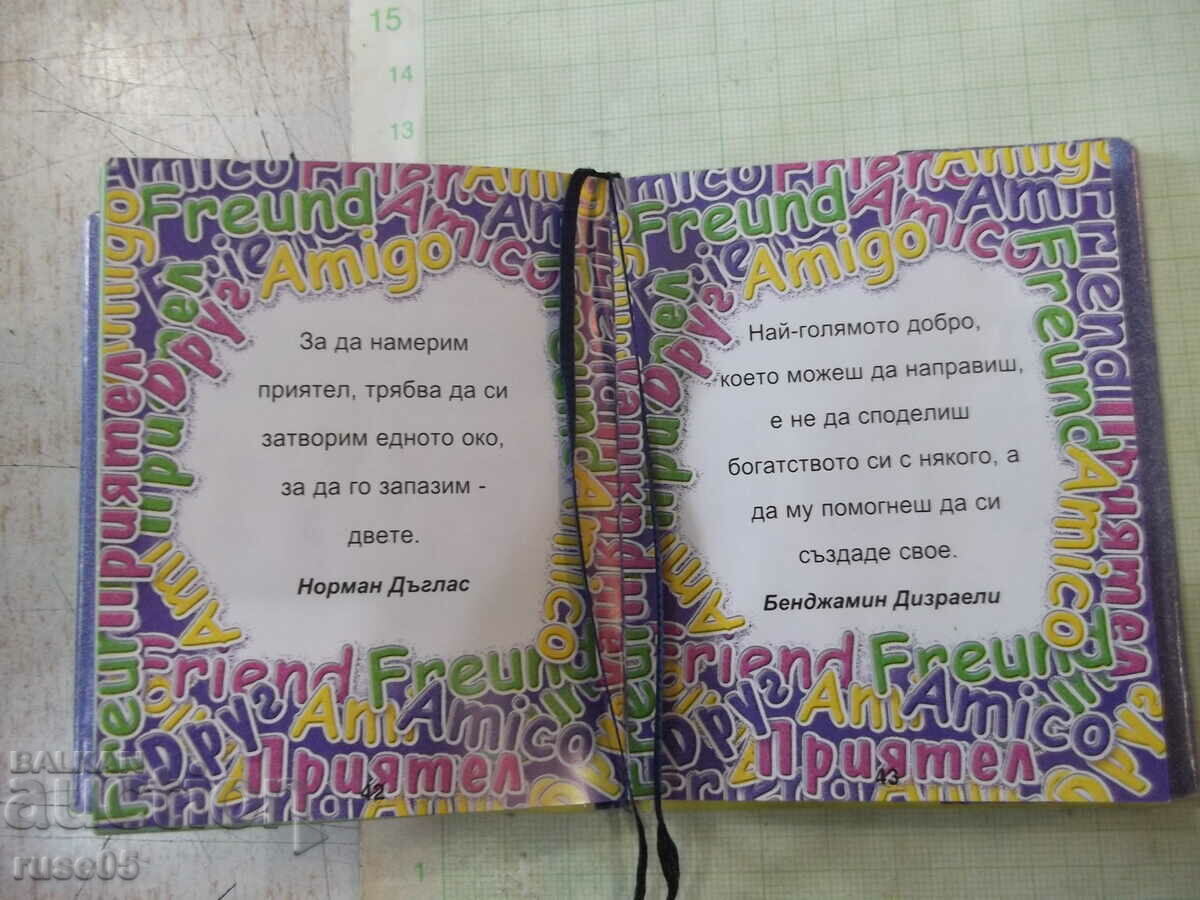 15
14
13
Amico Friend Amigo
Freund Amico
Amigo
За да намерим
приятел, трябва да си
затворим едното око,
за да го запазим -
двете.
Норман Дъглас
Friend Freund
Друг Amico
Приятел
42
Amico Friend Amigo
Freund Amico
Amigo
Най-голямото добро,
което можеш да направиш,
е не да споделиш
богатството си с някого, а
да му помогнеш да си
създаде свое.
Бенджамин Дизраели
Friend Freund
Друг Amico
Приятел
43
1
BALKAN
auction
ruse05